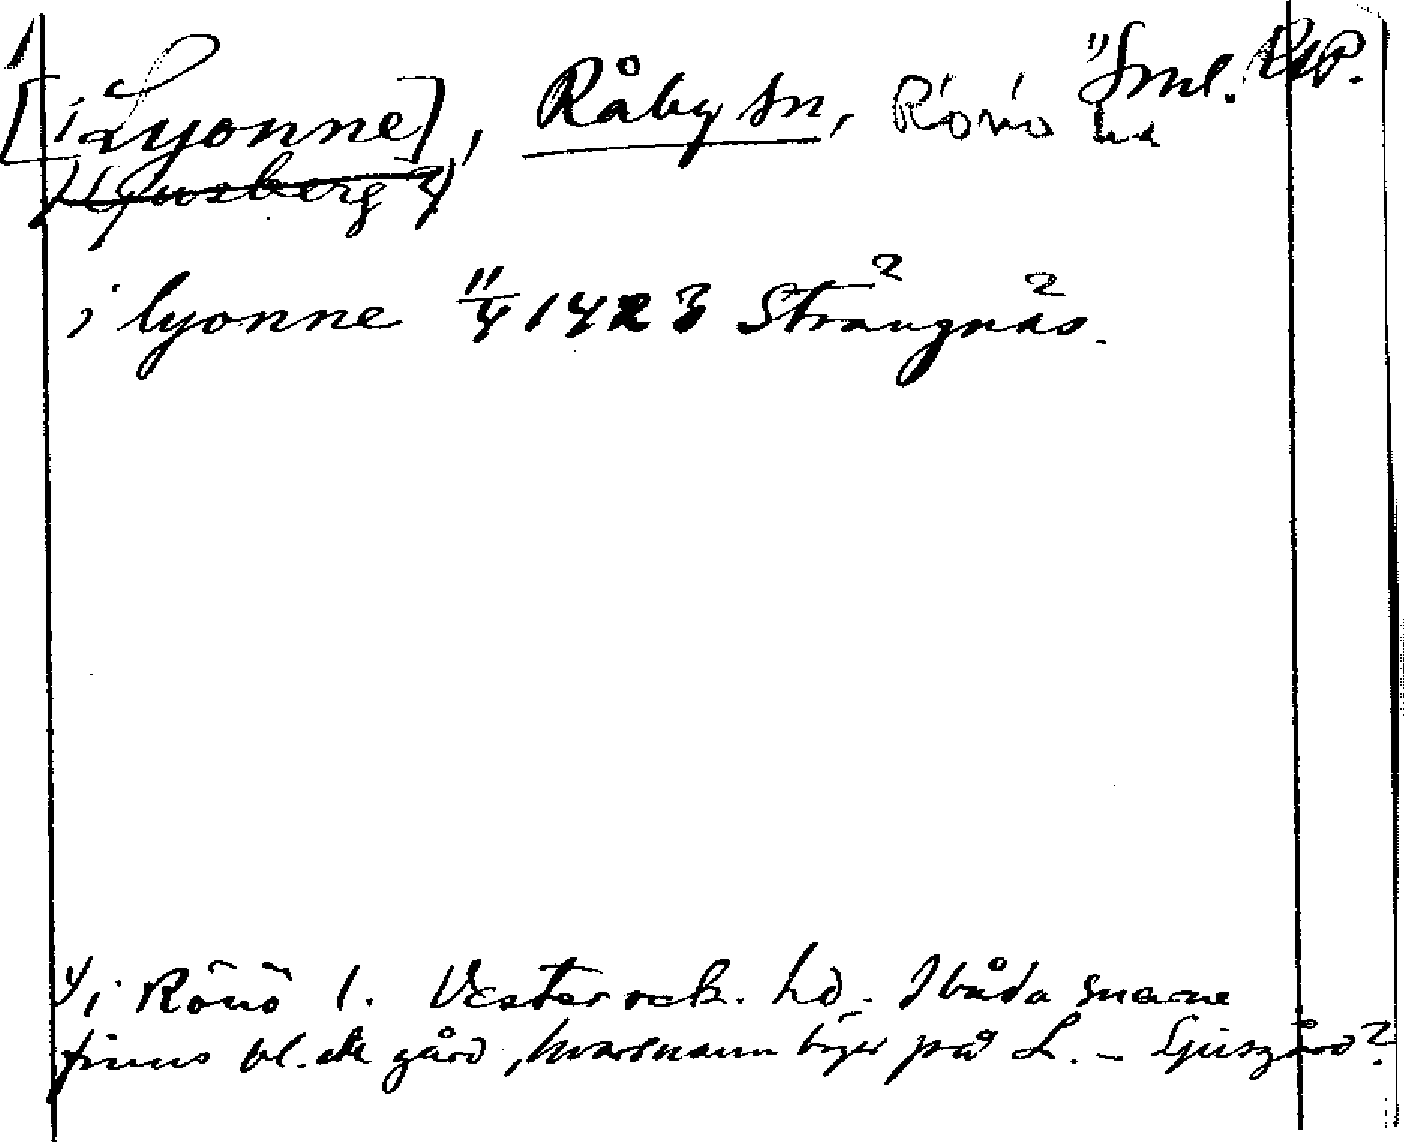 [i Lyonne], Råby sn, Rönö hd Sml. RAP.
Ljusberg
i lyonne 11/4 1423 Strängnäs.
i Rönö l. Vesterrek. hd. I båda snarne
finns bl. gård, hvars namn böjer på L. - Ljusgård?